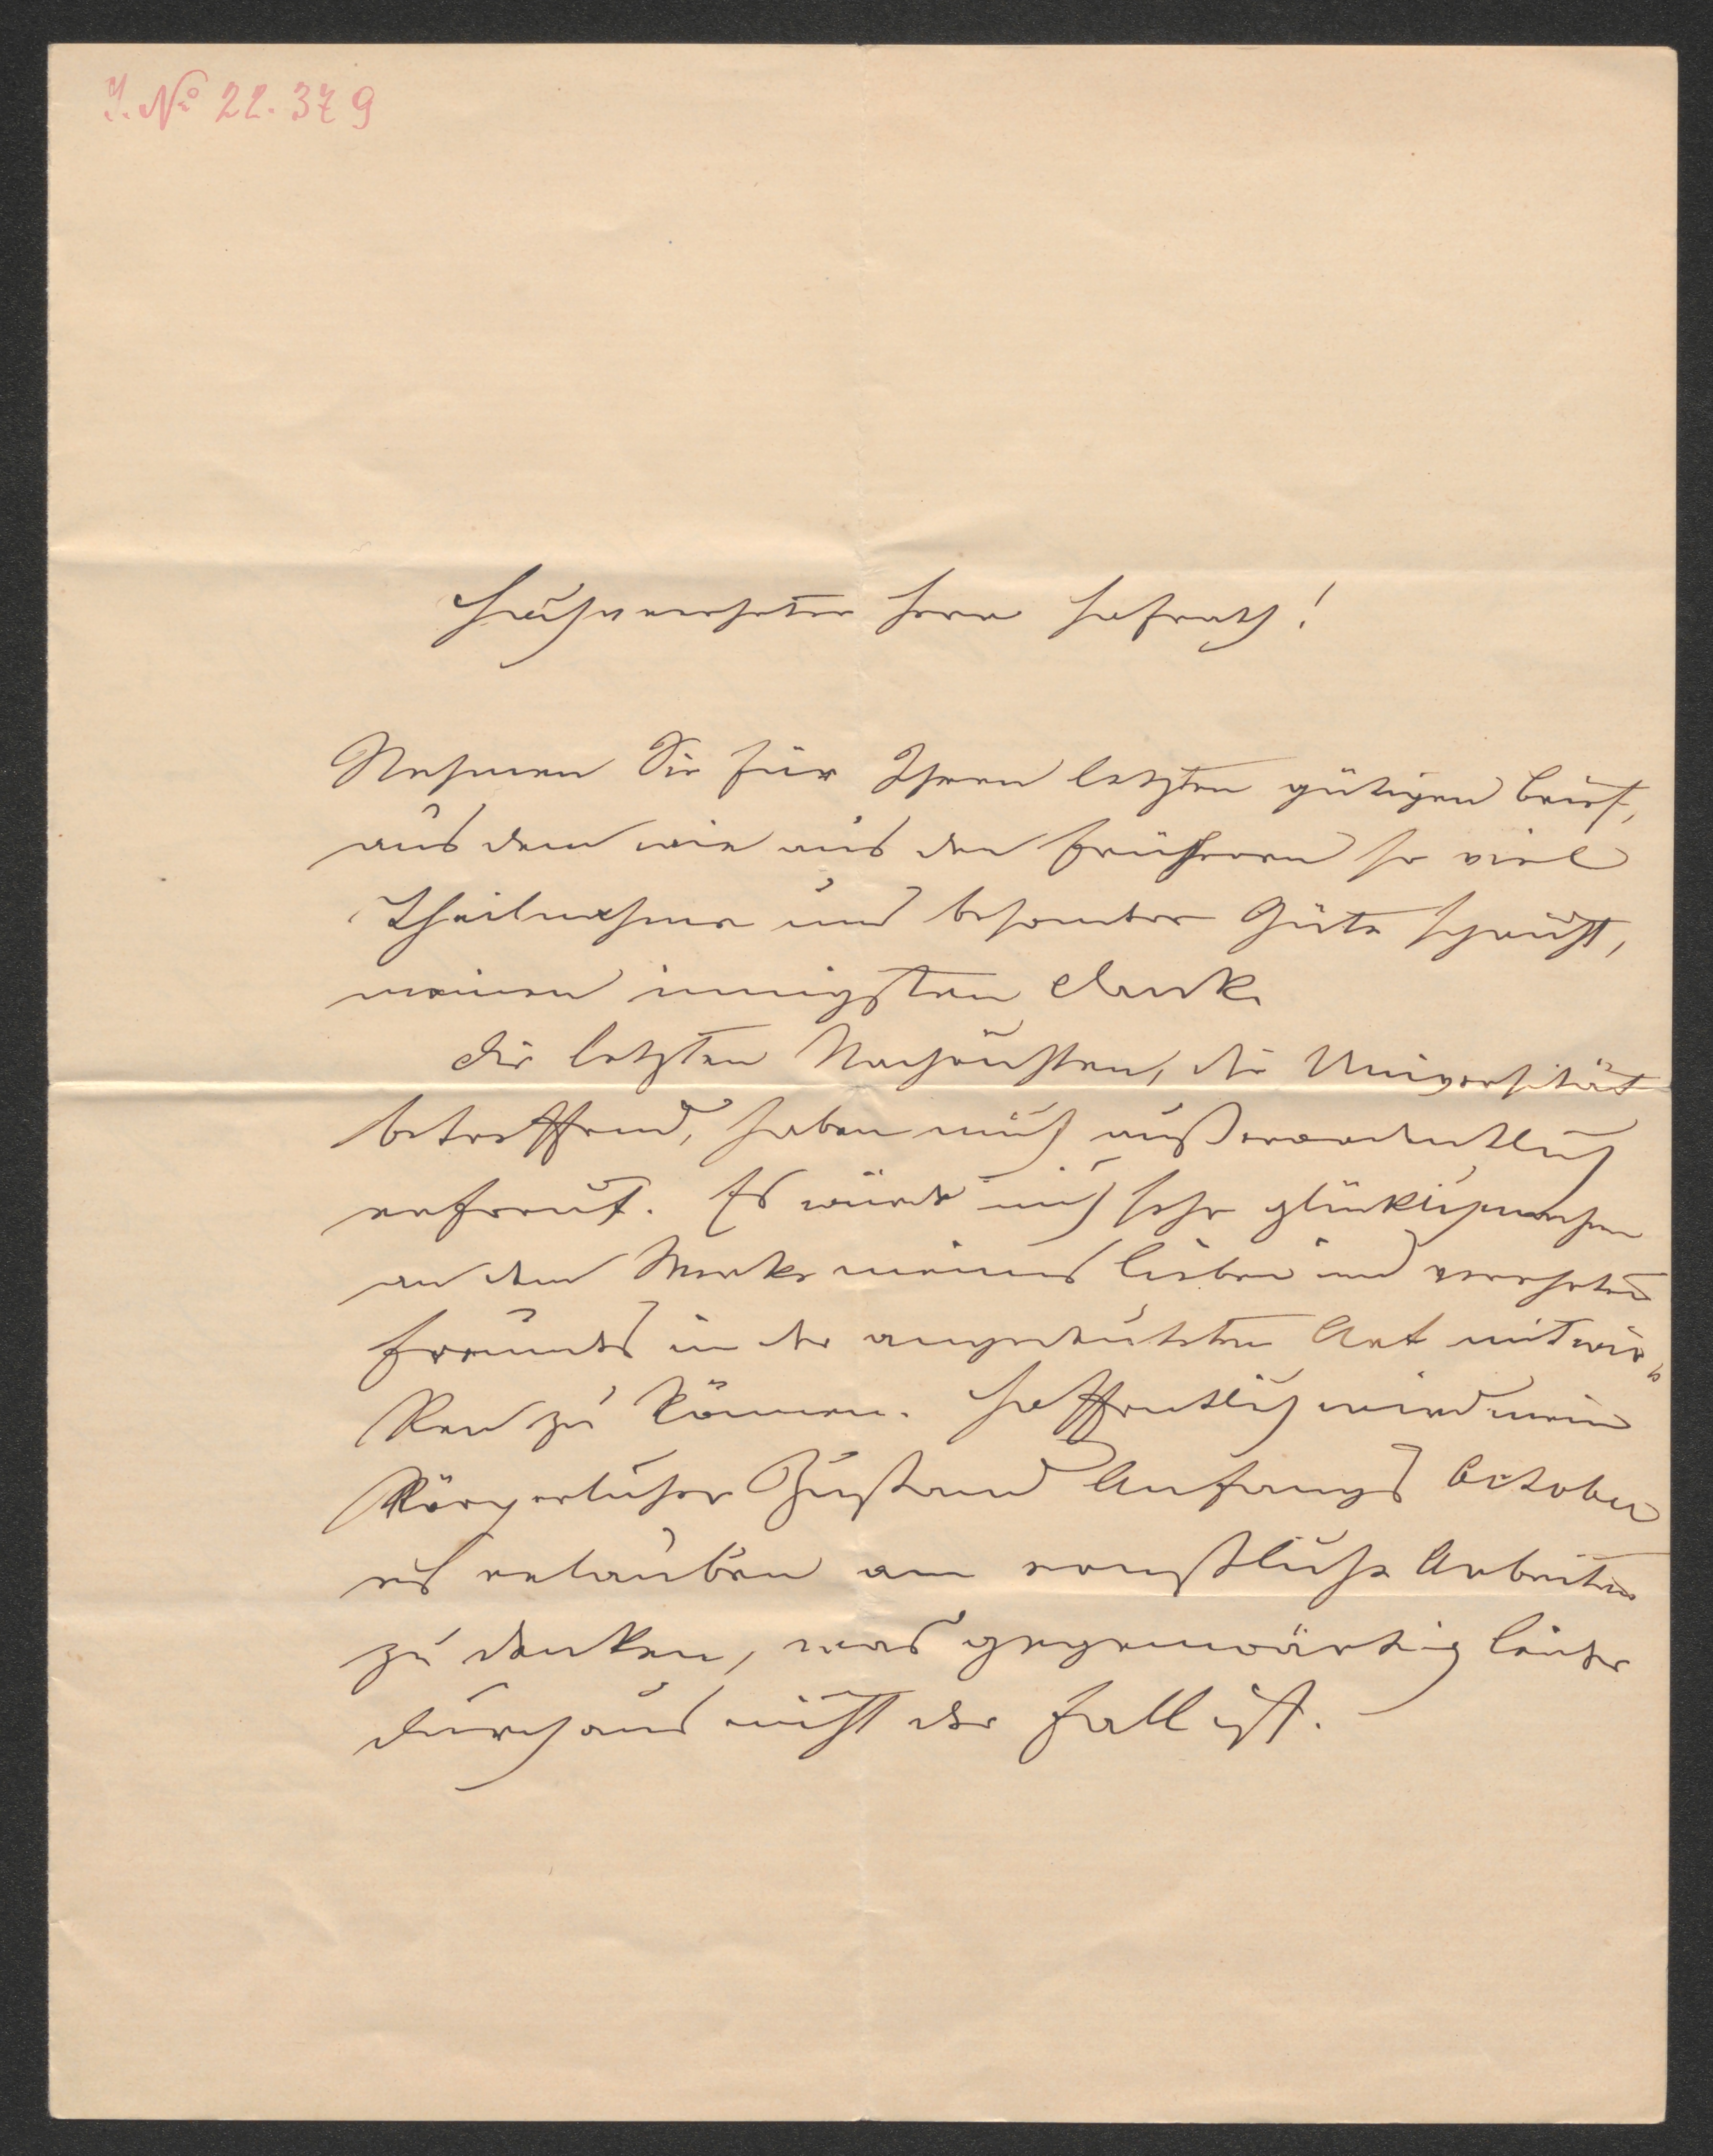 J. No 22.379
Hochverehrter Herr Hofrath!
Nehmen Sie für Ihren letzten gütigen Brief,
aus dem wie aus den früheren so viel
Theilnahme und besondere Güte spricht,
meinen innigsten Dank.
Die letzten Nachrichten, die Universität
betreffend, haben mich außerordentlich
erfreut. Es würde mich sehr glücklich machen
an dem Werke meines lieben und verehrten
Freundes in der angedeuteten Art mitwir-
ken zu können. Hoffentlich wird mein
körperlicher Zustand Anfangs October
es erlauben an ernstliche Arbeiten
zu denken, was gegenwärtig leider
durchaus nicht der Fall ist.